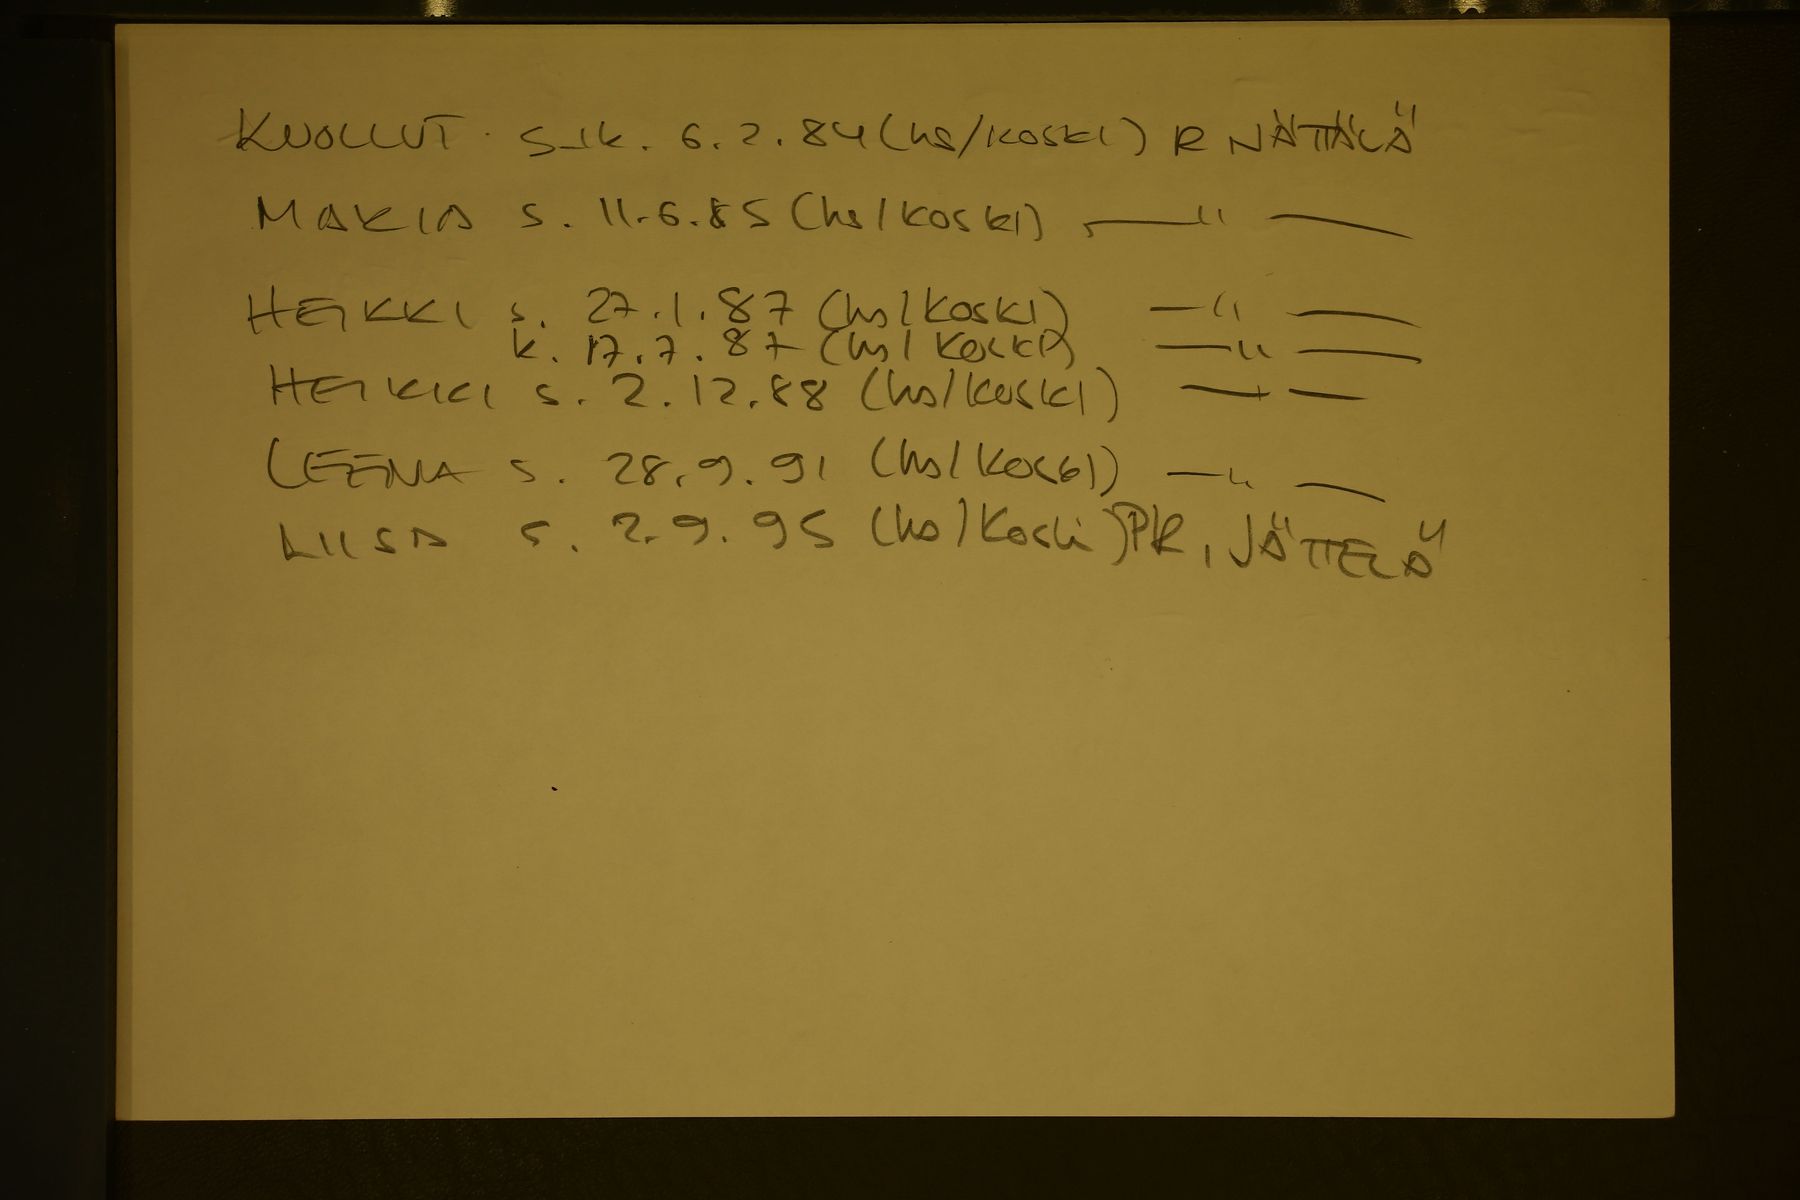 KUOLLUT s-k. 6.2.84 (hs/koski) R NÄTTÄLÄ
MARIA s. 11.6.85 (hs/koski) —"—
HEIKKI s. 27.1.87 (hs/koski) —"—
k. 17.7.87 (hs/koski) —"—
HEIKKI s. 2.12.88 (hs/koski) —"—
LEENA s. 28.9.91 (hs/koski) —"—
LIISA s. 2.9.95 (hs/koski) PR, JÄTTELÄ